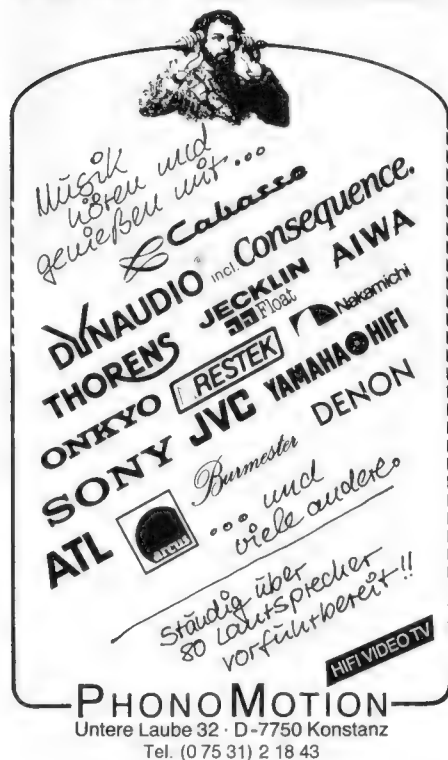 Musik
hören und
genießen mit...
Cabasse
DYNAUDIO incl. Consequence.
THORENS JECKLIN Float AIWA
ONKYO RESTEK Nakamichi
SONY JVC YAMAHA HIFI
ATL arcus Burmester DENON
... und
viele andere.
Ständig über
80 Lautsprecher
vorführbereit!!
HIFI VIDEO TV
PHONOMOTION
Untere Laube 32 · D-7750 Konstanz
Tel. (0 75 31) 2 18 43